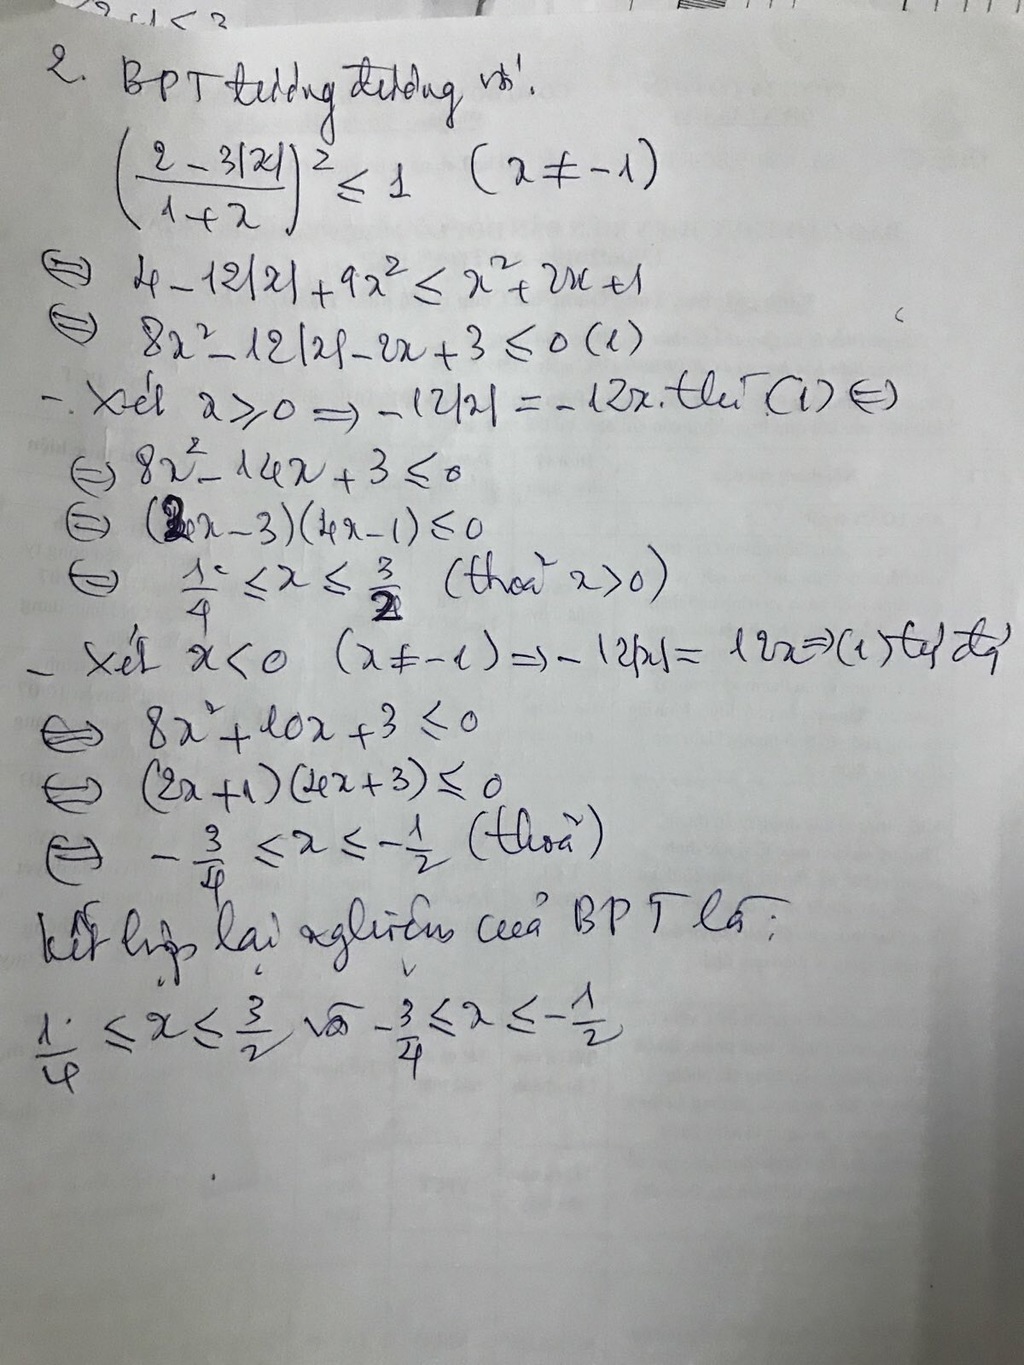 2. BPT tương đương với:
(2 - 3|x| / 1 + x)² ≤ 1 (x ≠ -1)
⇔ 4 - 12|x| + 9x² ≤ x² + 2x + 1
⇔ 8x² - 12|x| - 2x + 3 ≤ 0 (1)
- Xét x ≥ 0 ⇒ -12|x| = -12x. thì (1) ⇔
⇔ 8x² - 14x + 3 ≤ 0
⇔ (2x - 3)(4x - 1) ≤ 0
⇔ 1/4 ≤ x ≤ 3/2 (thoả x > 0)
- Xét x < 0 (x ≠ -1) ⇒ -12|x| = 12x ⇒ (1) tg đg
⇔ 8x² + 10x + 3 ≤ 0
⇔ (2x + 1)(4x + 3) ≤ 0
⇔ -3/4 ≤ x ≤ -1/2 (thoả)
Kết hợp lại nghiệm của BPT là:
1/4 ≤ x ≤ 3/2 và -3/4 ≤ x ≤ -1/2